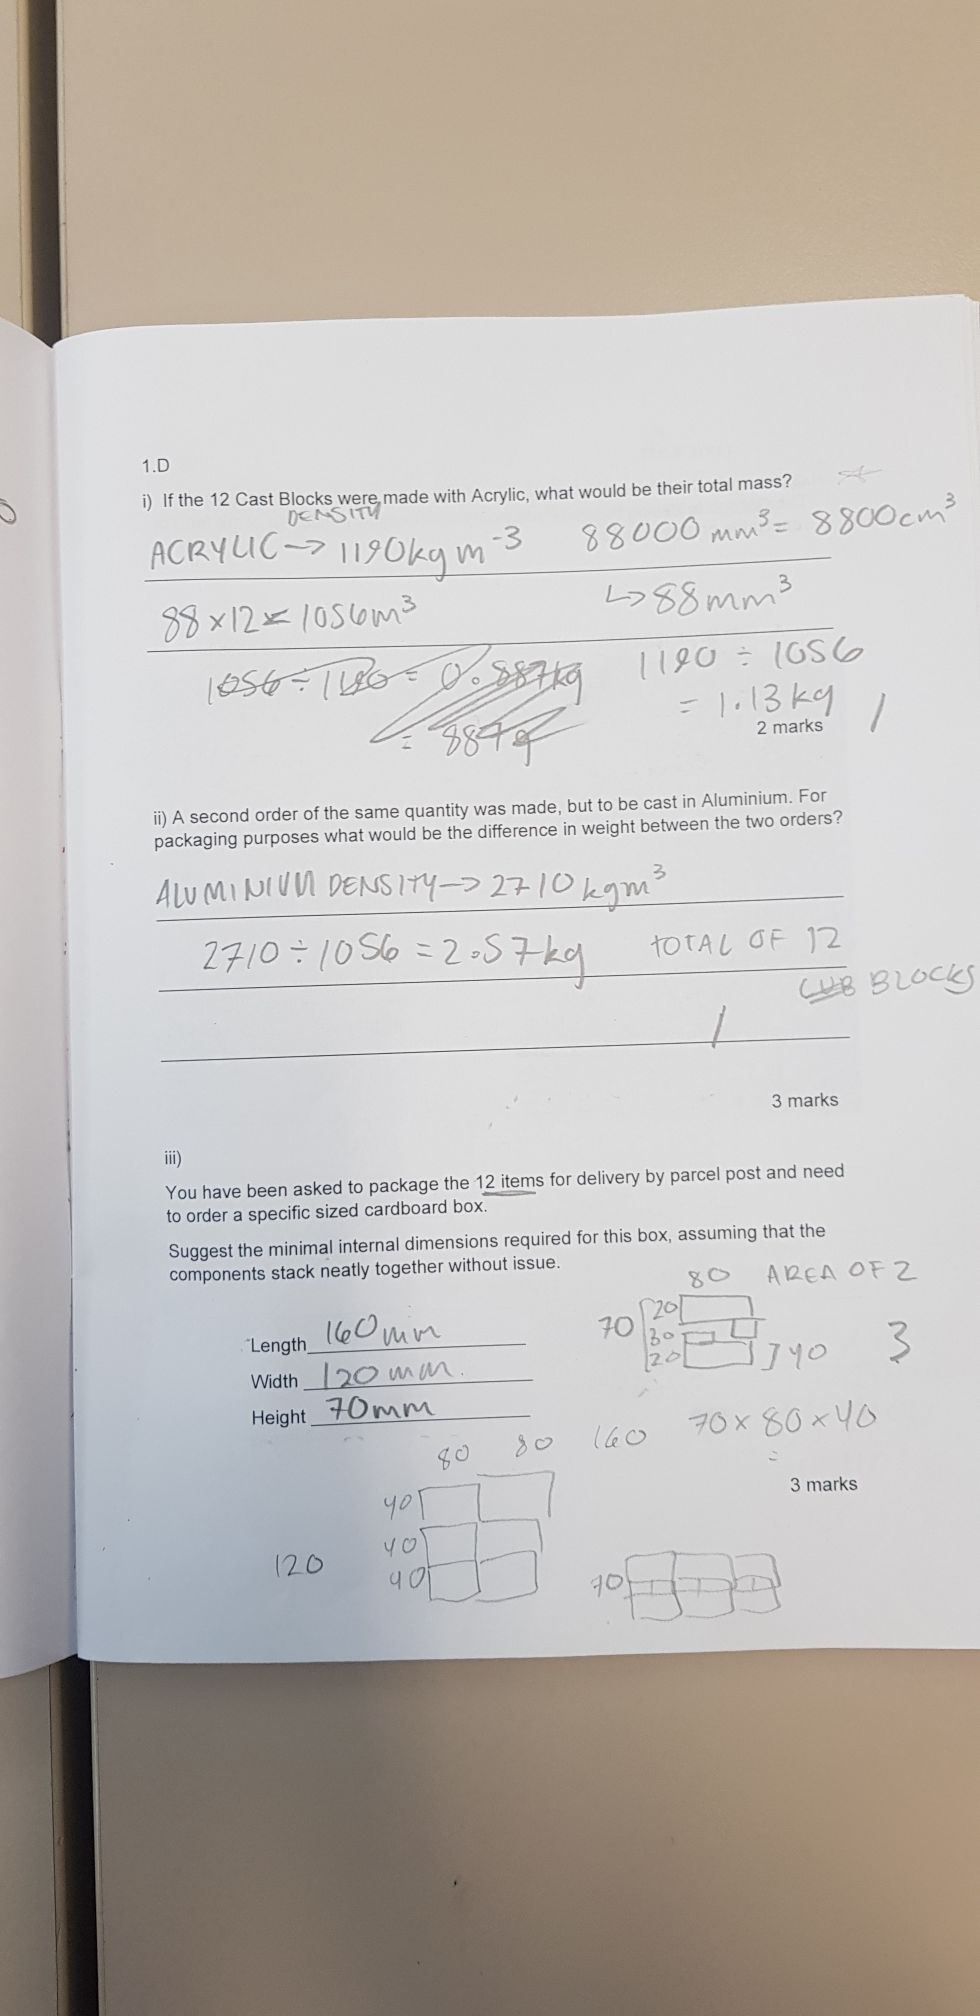 1.D
i) If the 12 Cast Blocks were made with Acrylic, what would be their total mass?
DENSITY
ACRYLIC → 1190kg m⁻³ 88000 mm³ = 8800cm³
↳ 88mm³
88 x 12 = 1056m³
1056 ÷ 1190 = 0.887kg
= 887g
1190 ÷ 1056
= 1.13 kg
2 marks /
ii) A second order of the same quantity was made, but to be cast in Aluminium. For
packaging purposes what would be the difference in weight between the two orders?
ALUMINIUM DENSITY → 2710 kgm³
2710 ÷ 1056 = 2.57kg TOTAL OF 12
CUB BLOCKS
/
3 marks
iii)
You have been asked to package the 12 items for delivery by parcel post and need
to order a specific sized cardboard box.
Suggest the minimal internal dimensions required for this box, assuming that the
components stack neatly together without issue.
80 AREA OF 2
Length 160mm
Width 120mm.
Height 70mm
70 20
30
20 40
3
70 x 80 x 40
=
80 80 160
3 marks
40
40
40
120
70